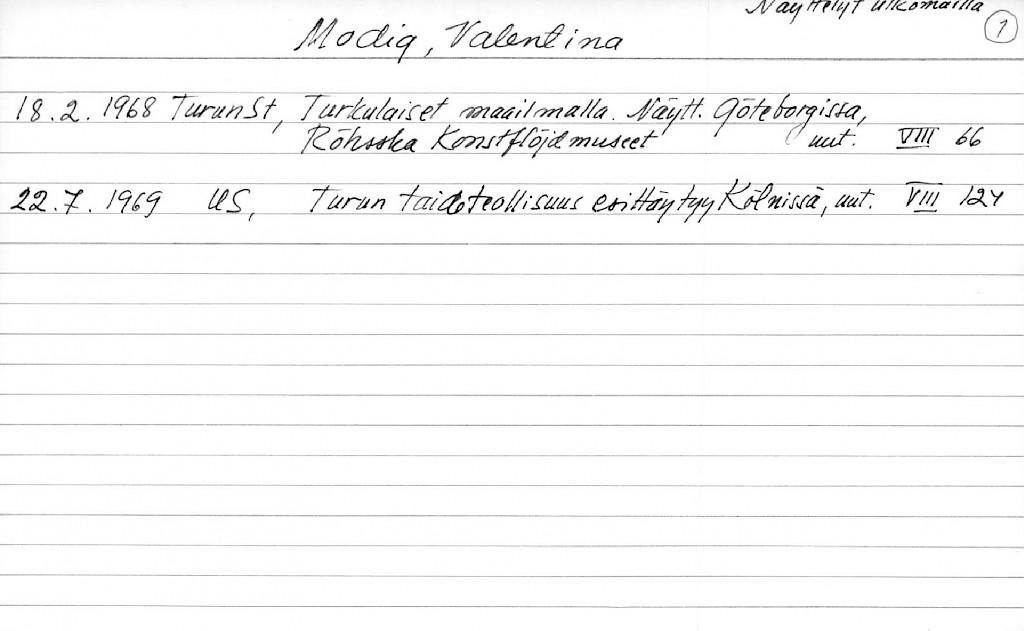 Näyttelyt ulkomailla 1
Modig, Valentina
18.2.1968 TurunSt, Turkulaiset maailmalla. Näytt. Göteborgissa,
Röhsska Konstflöjdmuseet uut. VIII 66
22.7.1969 US, Turun taideteollisuus esittäytyy Kölnissä, uut. VIII 124